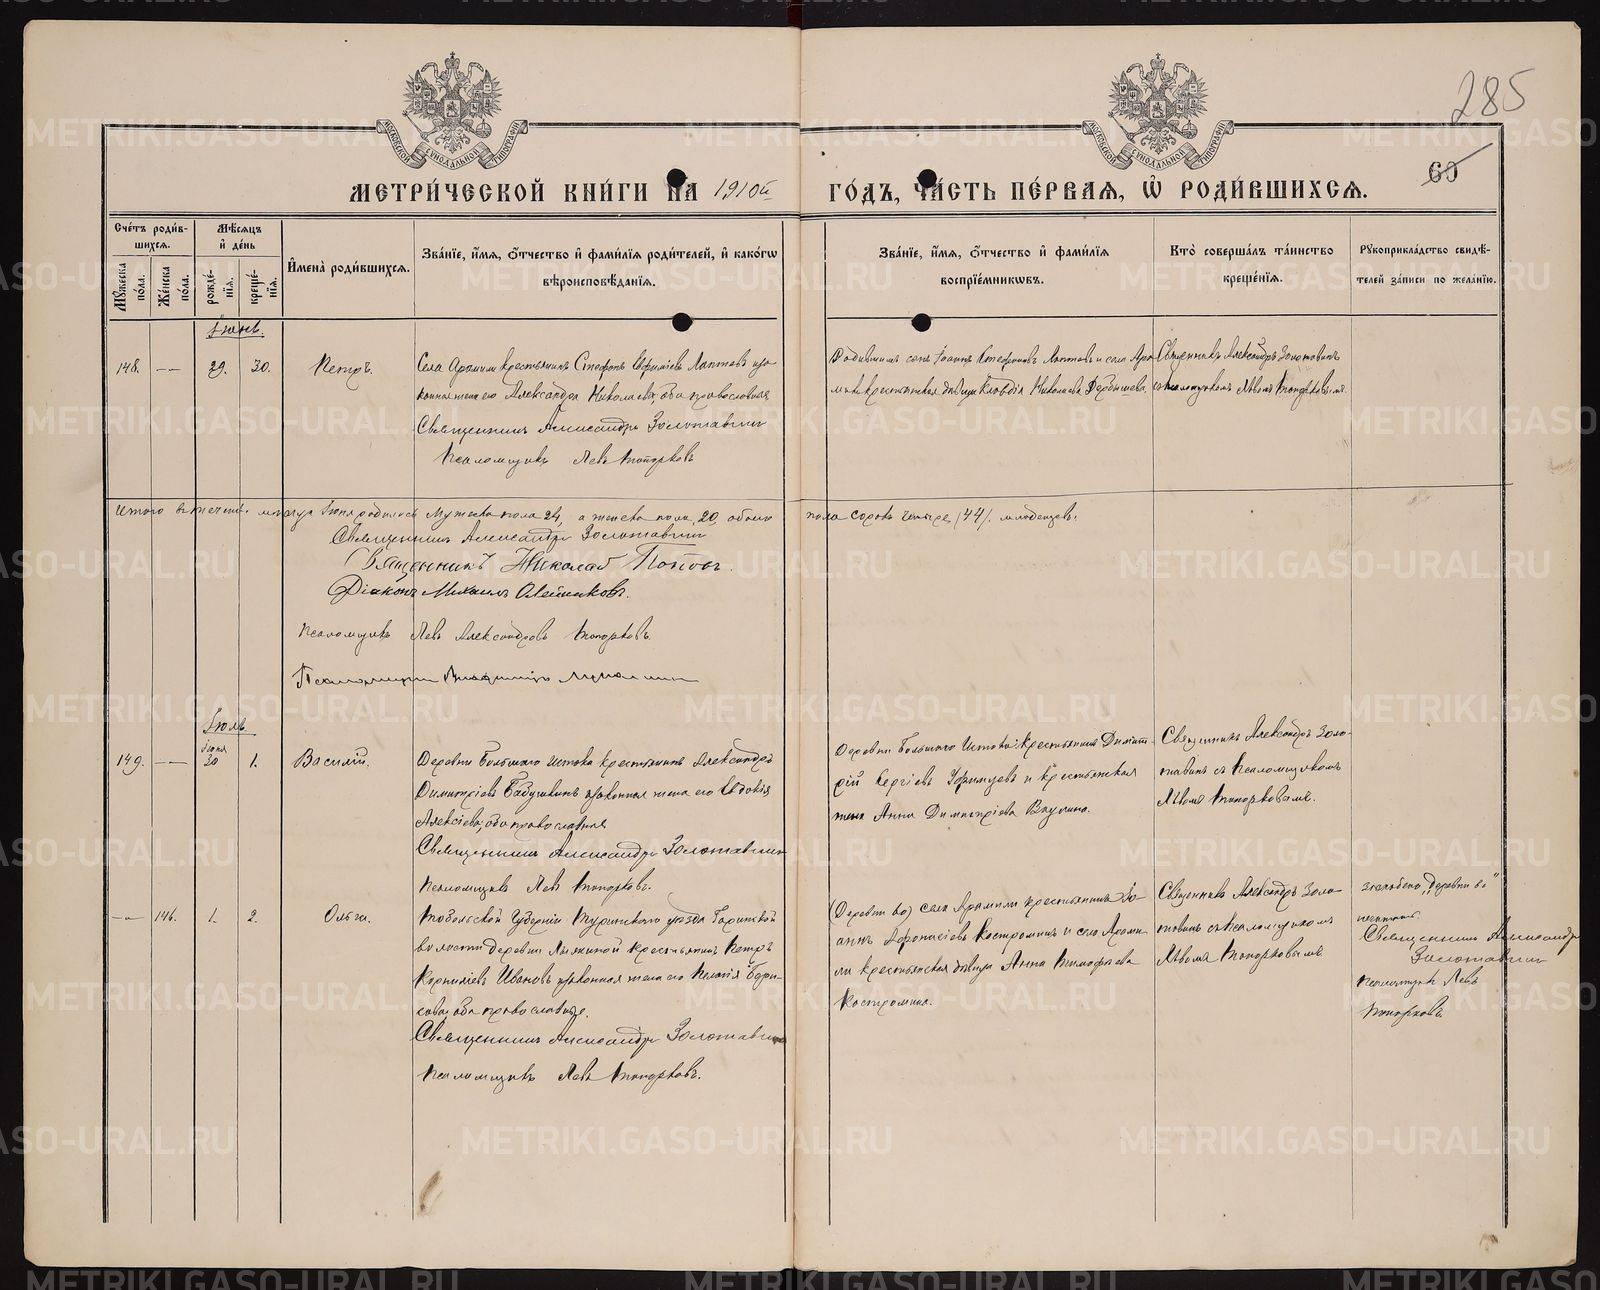 285
60
МЕТРИ́ЧЕСКОЙ КНИ́ГИ НА 1910й ГО́ДЪ, ЧА́СТЬ ПЕ́РВАЯ, Ѡ҆ РОДИ́ВШИХСЯ.
МОСКОВСКОЙ СѴНОДАЛЬНОЙ ТИПОГРАФІИ
МОСКОВСКОЙ СѴНОДАЛЬНОЙ ТИПОГРАФІИ
Сче́тъ роди́вшихся.
Мꙋ́жеска по́ла.
Же́нска по́ла.
Мѣ́сяцъ и҆ де́нь
рожде́нїя.
креще́нїя.
И҆мена̀ роди́вшихся.
Зва́нїе, и҆́мя, ѻ҆́тчество и҆ фами́лїя роди́телей, и҆ како́гѡ вѣроисповѣ́данїя.
Зва́нїе, и҆́мя, ѻ҆́тчество и҆ фами́лїя воспрїе́мникѡвъ.
Кто̀ соверша́лъ та́инство креще́нїя.
Рꙋкоприкла́дство свидѣ́телей за́писи по жела́нїю.
Іюнь.
148. — 29. 30. Петръ.
Села Арамили крестьянинъ Стефанъ Евфиміевъ Лаптевъ и за-
конная жена его Александра Николаева, оба православные
Священникъ Александръ Золотавинъ
Псаломщикъ Левъ Топорковъ
Родившимся сынъ Іоаннъ Стефановъ Лаптевъ и села Ара-
мили крестьянская дѣвица Клавдія Николаева Дербышева.
Священникъ Александръ Золотавинъ
съ псаломщикомъ Львомъ Топорковымъ.
Итого въ теченіе мѣсяца Іюня родилось мужеска пола 24, а женска пола 20, обоего пола сорокъ четыре /44/ младенцевъ.
Священникъ Александръ Золотавинъ
Священникъ Николай Поповъ.
Діаконъ Михаилъ Олесниковъ.
Псаломщикъ Левъ Александровъ Топорковъ.
Псаломщикъ Владиміръ
Іюль.
149. — Іюня 30 1. Василій.
Деревни Большаго Истока крестьянинъ Александръ
Димитріевъ Бабушкинъ и законная жена его Евдокія
Алексіева, оба православные
Священникъ Александръ Золотавинъ
Псаломщикъ Левъ Топорковъ.
Деревни Большаго Истока: крестьянинъ Димит-
рій Сергіевъ Уфимцевъ и крестьянская
жена Анна Димитріева Ваулина.
Священникъ Александръ Золо-
тавинъ съ Псаломщикомъ
Львомъ Топорковымъ.
— 146. 1. 2. Ольга.
Тобольской Губерніи Туринскаго уѣзда Гаринской
волости деревни Лыжиной крестьянинъ Петръ
Корниліевъ Ивановъ и законная жена его Пелагія Бори-
сова, оба православные.
Священникъ Александръ Золотавинъ
Псаломщикъ Левъ Топорковъ.
(Деревни Бо) села Арамили крестьянинъ Іо-
аннъ Афонасіевъ Костроминъ и села Арами-
ли крестьянская дѣвица Анна Тимофеева
Костромина.
Священникъ Александръ Золо-
тавинъ съ псаломщикомъ
Львомъ Топорковымъ
„деревни Бо"
Священникъ Александръ
Золотавинъ
Псаломщикъ Левъ
Топорковъ.
METRIKI.GASO-URAL.RU